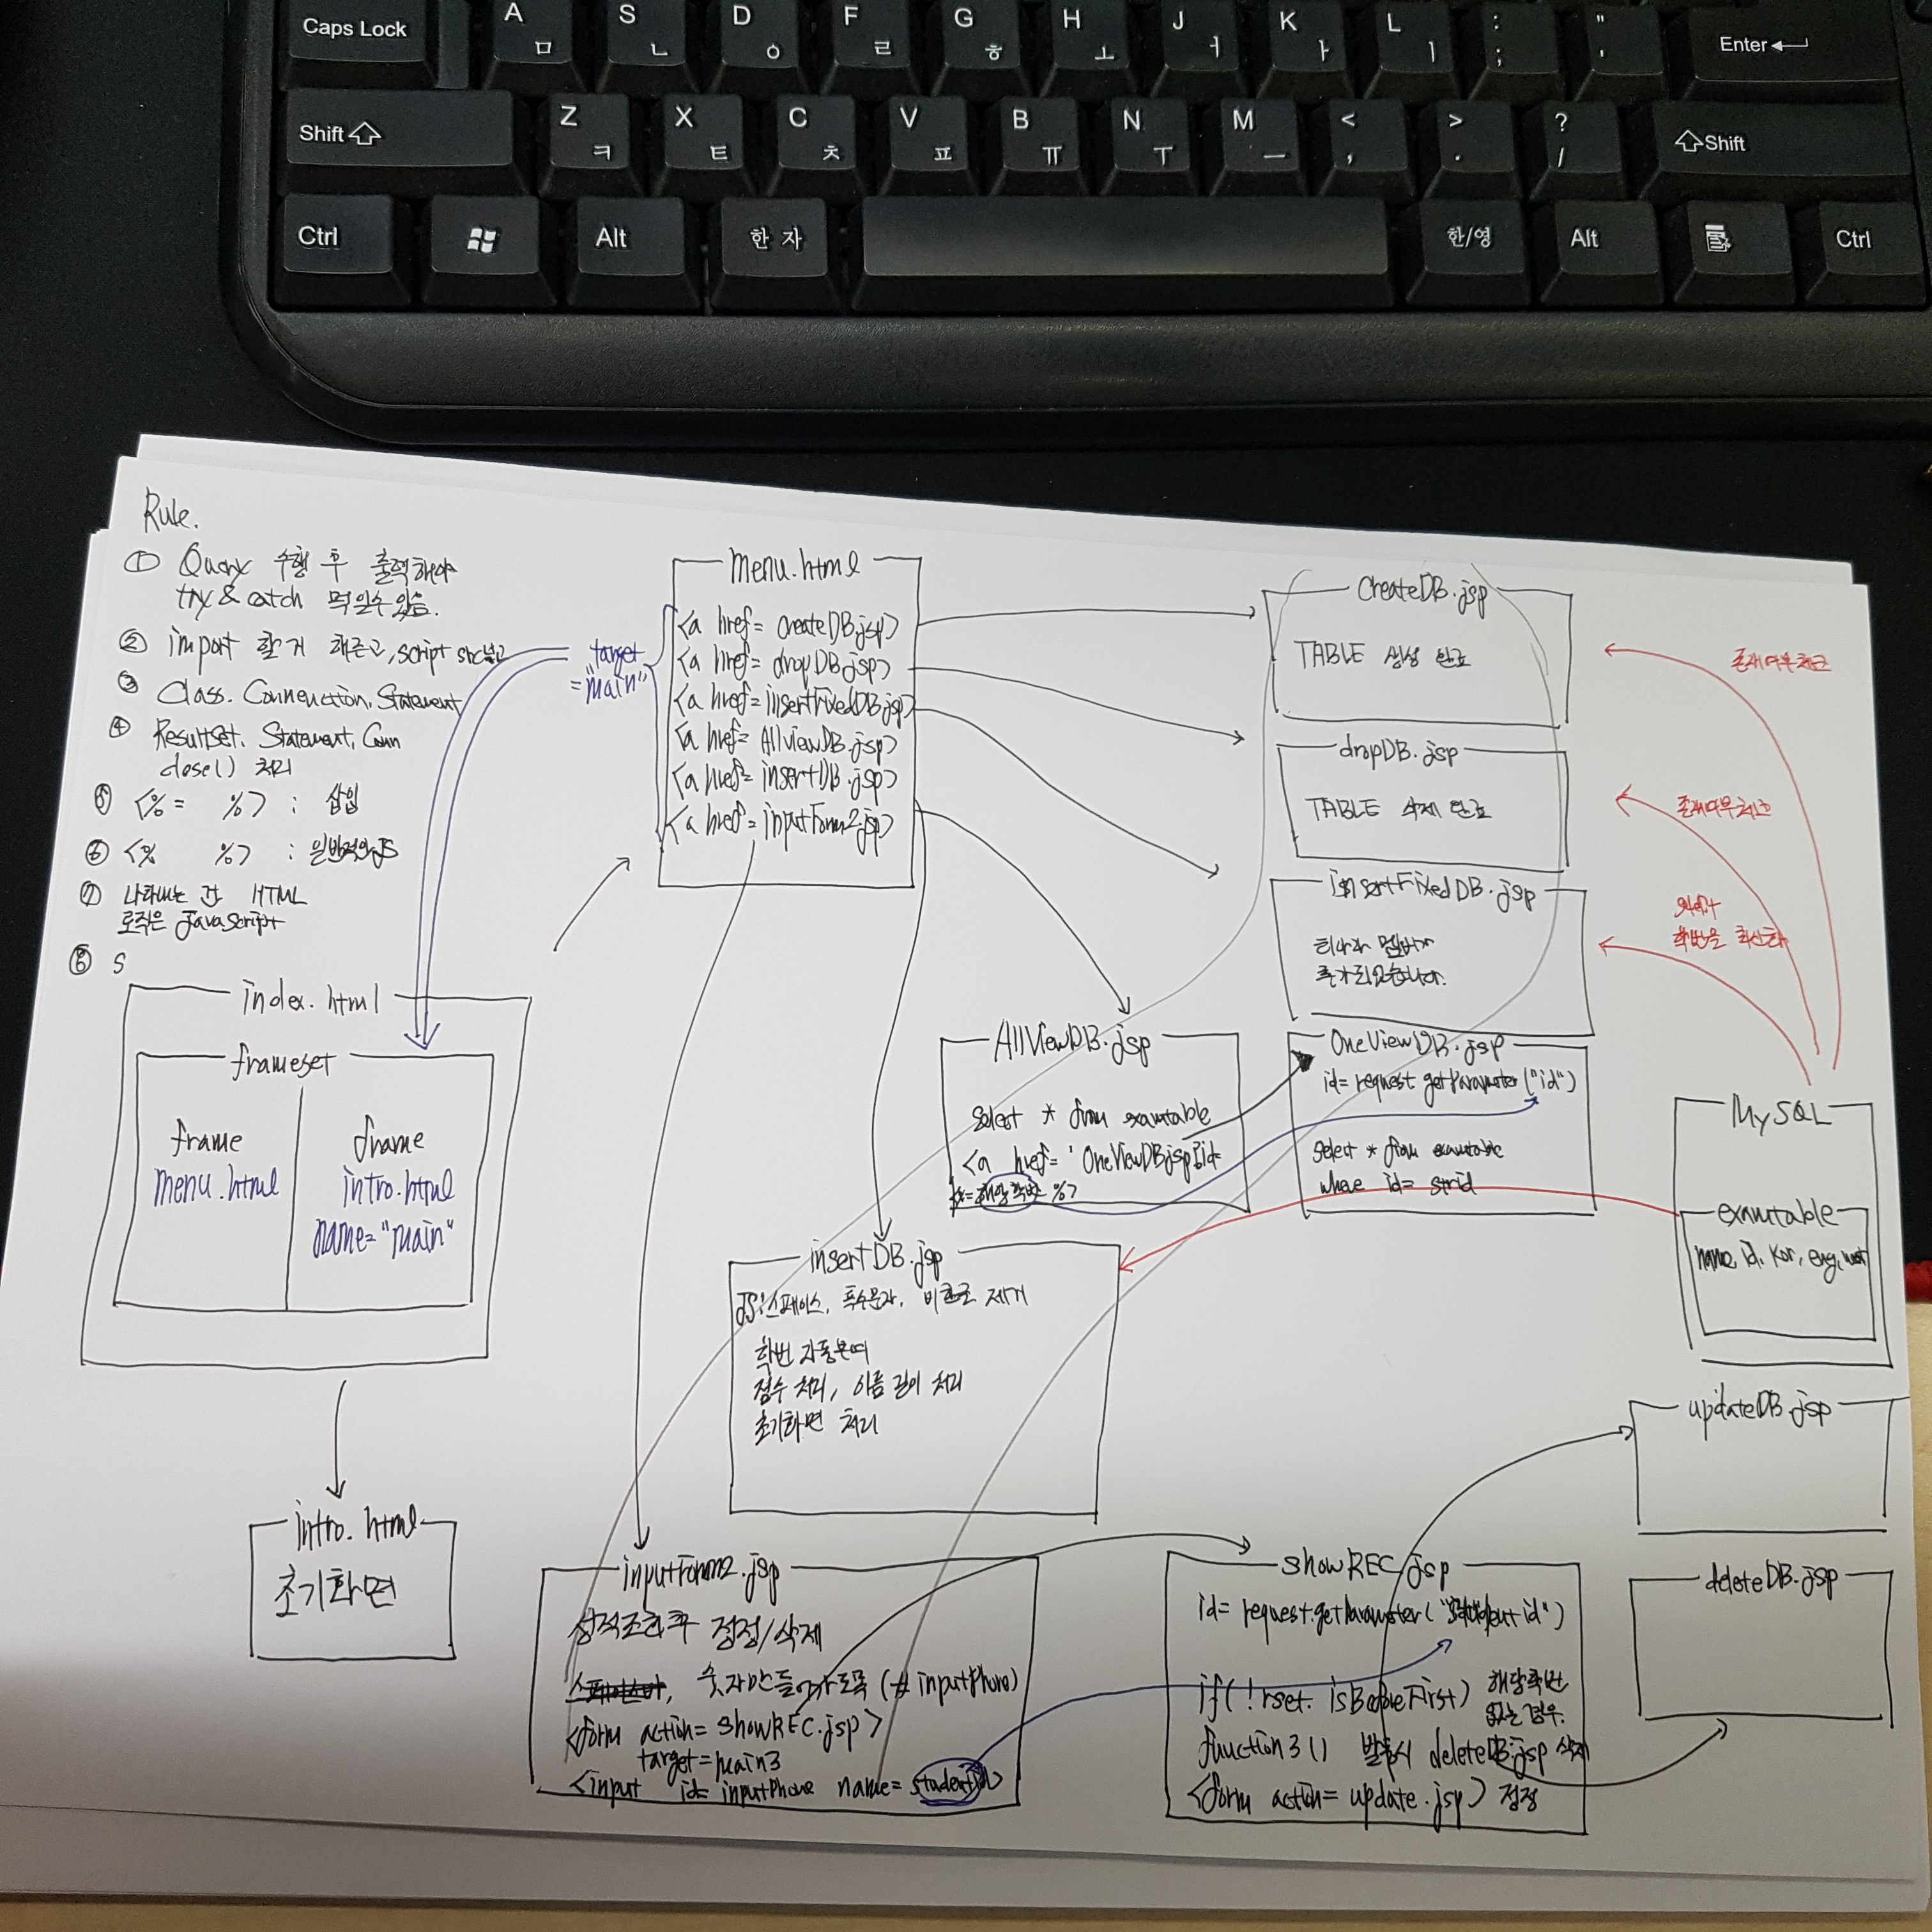 Caps Lock
A ㅁ
S ㄴ
D ㅇ
F ㄹ
G ㅎ
H ㅗ
J ㅓ
K ㅏ
L ㅣ
: ;
" '
Enter
Shift
Z ㅋ
X ㅌ
C ㅊ
V ㅍ
B ㅠ
N ㅜ
M ㅡ
< ,
> .
? /
Shift
Ctrl
Alt
한자
한/영
Alt
Ctrl
Rule.
① Query 수행 후 출력해야
try & catch 먹일수있음.
② import 할거 해주고, script src넣고
③ Class. Connenction, Statement
④ ResultSet. Statement, Conn
close() 처리
⑤ <%= %> : 삽입
⑥ <% %> : 일반적인 JS
⑦ 나타내는 건 HTML
로직은 JavaScript
⑧ S
target
="main"
menu.html
<a href= createDB.jsp>
<a href= dropDB.jsp>
<a href= insertFixedDB.jsp>
<a href= AllviewDB.jsp>
<a href= insertDB.jsp>
<a href= inputForm2.jsp>
CreateDB.jsp
TABLE 생성 완료
존재여부체크
dropDB.jsp
TABLE 삭제 완료
존재여부체크
insertFixedDB.jsp
멤버가
추가되었습니다.
학번을 최신화
index.html
frameset
frame
menu.html
frame
intro.html
name="main"
intro.html
초기화면
AllViewDB.jsp
select * from examtable
<a href='OneViewDB.jsp?id=
<%=해당학번 %>
OneViewDB.jsp
id= request getParameter("id")
select * from examtable
where id= strid
MySQL
examtable
name, id, kor, eng, mat
insertDB.jsp
JS:스페이스, 특수문자, 비한글 제거
학번 자동부여
점수 처리, 이름 길이 처리
초기화면 처리
updateDB.jsp
deleteDB.jsp
inputForm2.jsp
성적조회후 정정/삭제
숫자만 들어가도록 (# inputPhone)
<form action= showREC.jsp>
target=main3
<input id= inputPhone name= studentid>
showREC.jsp
id= request.getParameter(
if(!rset. isBeforeFirst) 해당학번
없는경우.
function3() 발동시 deleteDB.jsp 삭제
<form action= update.jsp> 정정